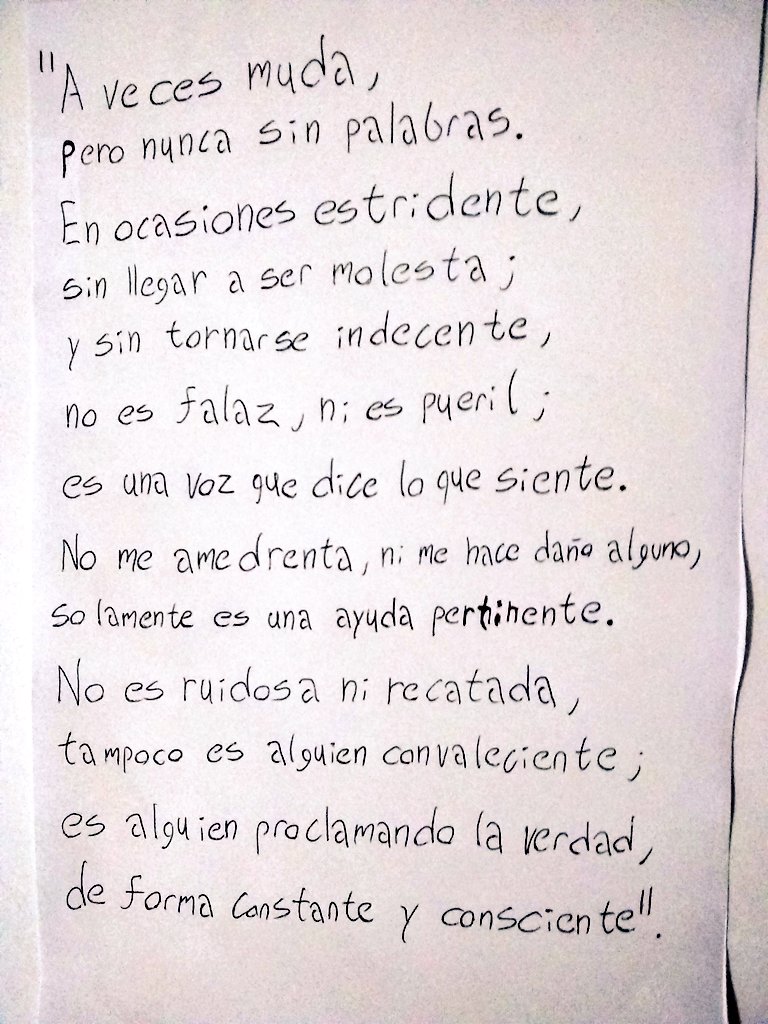 "A veces muda,
pero nunca sin palabras.
En ocasiones estridente,
sin llegar a ser molesta;
y sin tornarse indecente,
no es falaz, ni es pueril;
es una voz que dice lo que siente.
No me amedrenta, ni me hace daño alguno,
solamente es una ayuda pertinente.
No es ruidosa ni recatada,
tampoco es alguien convaleciente;
es alguien proclamando la verdad,
de forma constante y consciente".